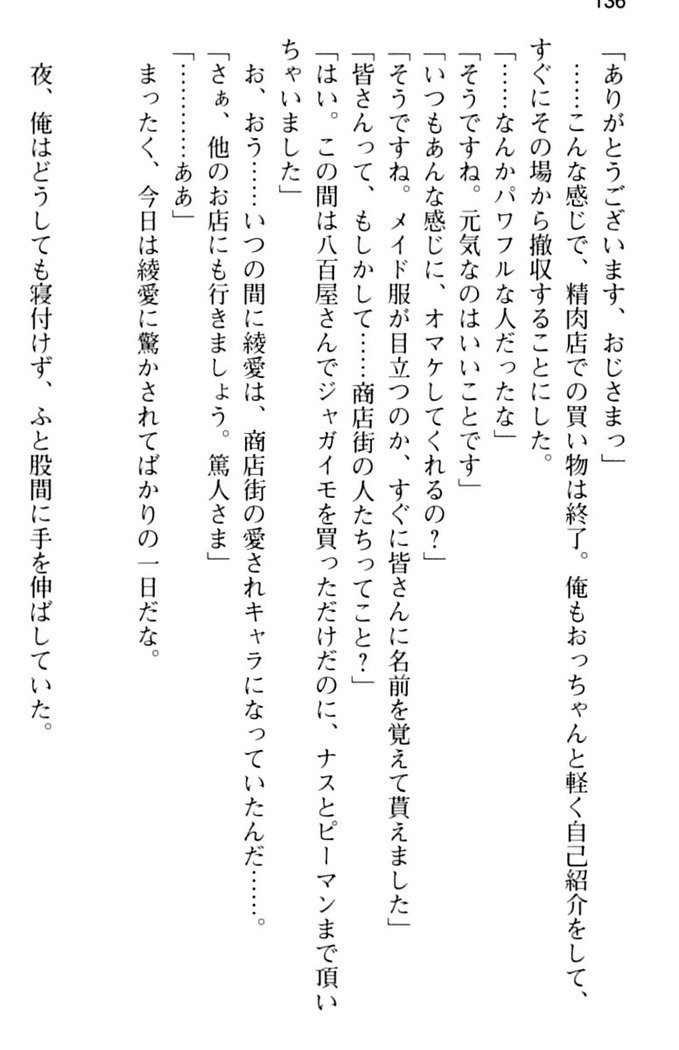 136
「ありがとうございます、おじさまっ」
……こんな感じで、精肉店での買い物は終了。俺もおっちゃんと軽く自己紹介をして、
すぐにその場から撤収することにした。
「……なんかパワフルな人だったな」
「そうですね。元気なのはいいことです」
「いつもあんな感じに、オマケしてくれるの？」
「そうですね。メイド服が目立つのか、すぐに皆さんに名前を覚えて貰えました」
「皆さんって、もしかして……商店街の人たちってこと？」
「はい。この間は八百屋さんでジャガイモを買っただけだのに、ナスとピーマンまで頂い
ちゃいました」
お、おう……いつの間に綾愛は、商店街の愛されキャラになっていたんだ……。
「さぁ、他のお店にも行きましょう。篤人さま」
「…………ああ」
まったく、今日は綾愛に驚かされてばかりの一日だな。
夜、俺はどうしても寝付けず、ふと股間に手を伸ばしていた。